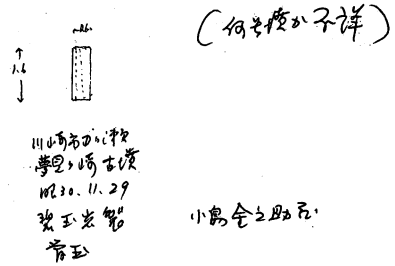 (何号墳か不詳)
1.6
川崎市
夢見ヶ崎古墳
昭30.11.29
碧玉岩製
管玉
小島金之助氏